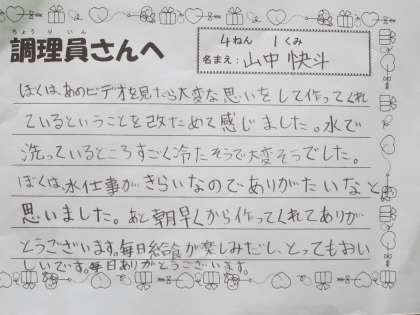 ちょうりいん
調理員さんへ
4ねん 1くみ
名まえ：山中 快斗
ぼくは、あのビデオを見たら大変な思いをして作ってくれ
ているということを改ためて感じました。水で
洗っているところすごく冷たそうで大変そうでした。
ぼくは、水仕事がきらいなのでありがたいなと
思いました。あと朝早くから作ってくれてありが
とうございます。毎日給食が楽しみだし、とってもおい
しいです。毎日ありがとうございます。